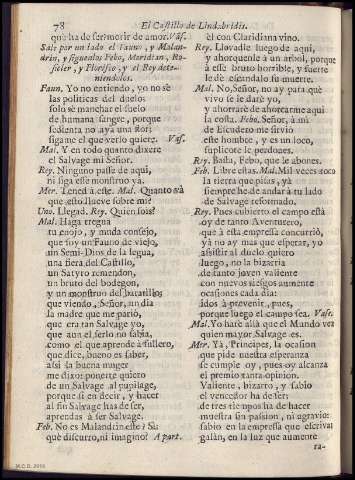 78 El Castillo de Lindabridis.
que ha de ser morir de amor. Vas.
Sale por un lado el Fauno, y Malan-
drin, y siguenlos Febo, Meridian, Ro-
sicler, y Floriseo, y el Rey dete-
niendolos.
Faun. Yo no entiendo, yo no sè
las politicas del duelo;
solo sè manchar el suelo
de humana sangre, porque
sedienta no aya una flor;
sigame el que verlo quiere. Vas.
Mal. Y en todo quanto dixere
el Salvage mi Señor.
Rey. Ninguno passe de aqui,
ni siga esse monstruo ya.
Mer. Tened à este. Mal. Quanto và
que esto llueve sobre mi?
Uno. Llegad. Rey. Quien sois?
Mal. Haga tregua
tu enojo, y muda consejo,
que soy un Fauno de viejo,
un Semi-Dios de la legua,
una fiera del Castillo,
un Satyro remendon,
un bruto del bodegon,
y un monstruo del baratillo:
que viendo, Señor, un dia
la madre que me pariò,
que era tan Salvage yo,
que aun el serlo no sabia,
como el que aprende à fullero,
que dice, bueno es saber,
asi la buena muger
me dixo: ponerte quiero
de un Salvage al pupilage,
porque si en decir, y hacer
al fin Salvage has de ser,
aprendas à ser Salvage.
Feb. No es Malandrin este? Sì:
què discurro, ni imagino? Apart.
èl con Claridiana vino.
Rey. Llevadle luego de aqui,
y ahorquenle à un arbol, porque
à esse bruto horrible, y fuerte
le dè escandalo su muerte.
Mal. No, Señor, no ay para què
vivo se le darè yo,
y ahorrarè de ahorcarme aqui
la costa. Febo. Señor, à mi
de Escudero me sirviò
este hombre, y es un loco,
suplicote le perdones.
Rey. Basta, Febo, que le abones.
Feb. Libre estas. Mal. Mil veces toco
la tierra que pisas, yà
siempre he de andar à tu lado
de Salvage reformado.
Rey. Pues cubierto el campo està
oy de tanto Aventurero,
que à esta empressa concurriò,
yà no ay mas que esperar, yo
assistir al duelo quiero
luego, no la bizarria
de tanto joven valiente
con nuevos riesgos aumente
ocasiones cada dia:
idos à prevenir, pues,
porque luego el campo sea. Vase.
Mal. Yo harè allà que el Mundo vea
quien mayor Salvage es.
Mer. Yà, Principes, la ocasion
que pide nuestra esperanza
se cumple oy, pues oy alcanza
el premio tanta opinion.
Valiente, bizarro, y sabio
el vencedor ha de ser:
de tres tiempos ha de hacer
nuestra sin passion, ni agravio:
sabio en la empressa que escriva;
galàn, en la luz que aumente
ra-